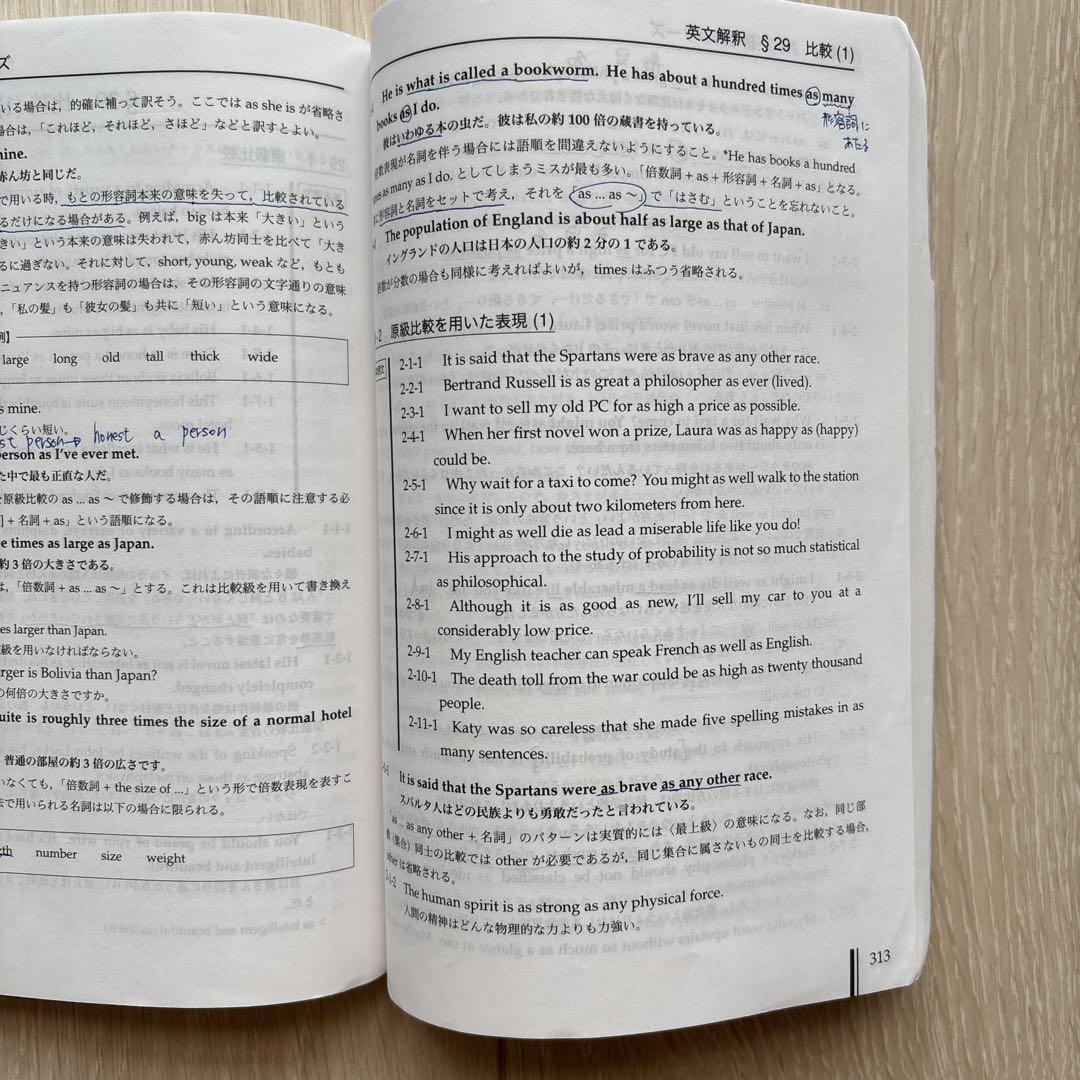 ズ
いる場合は，的確に補って訳そう。ここでは as she is が省略さ
場合は，「これほど，それほど，さほど」などと訳すとよい。
mine.
赤ん坊と同じだ。
で用いる時，もとの形容詞本来の意味を失って，比較されている
るだけになる場合がある。例えば，big は本来「大きい」という
きい」という本来の意味は失われて，赤ん坊同士を比べて「大き
るに過ぎない。それに対して，short, young, weak など，もとも
ニュアンスを持つ形容詞の場合は，その形容詞の文字通りの意味
，「私の髪」も「彼女の髪」も共に「短い」という意味になる。
例】
large long old tall thick wide
s mine.
じくらい短い。
st person→ honest a person
person as I've ever met.
た中で最も正直な人だ。
を原級比較の as ... as 〜 で修飾する場合は，その語順に注意する必
詞］＋名詞＋as」という語順になる。
e times as large as Japan.
約３倍の大きさである。
は，「倍数詞＋as ... as 〜」とする。これは比較級を用いて書き換え
es larger than Japan.
級を用いなければならない。
rger is Bolivia than Japan?
の何倍の大きさですか。
uite is roughly three times the size of a normal hotel
普通の部屋の約３倍の広さです。
いなくても，「倍数詞＋the size of ...」という形で倍数表現を表すこ
法で用いられる名詞は以下の場合に限られる。
gth number size weight
英文解釈 §29 比較(1)
He is what is called a bookworm. He has about a hundred times as many
books as I do.
形容詞に
あたる
彼はいわゆる本の虫だ。彼は私の約100倍の蔵書を持っている。
倍数表現が名詞を伴う場合には語順を間違えないようにすること。*He has books a hundred
times as many as I do. としてしまうミスが最も多い。「倍数詞＋as＋形容詞＋名詞＋as」となる。
に形容詞と名詞をセットで考え，それを「as ... as 〜」で「はさむ」ということを忘れないこと。
The population of England is about half as large as that of Japan.
イングランドの人口は日本の人口の約２分の１である。
倍数が分数の場合も同様に考えればよいが，times はふつう省略される。
-2 原級比較を用いた表現(1)
2-1-1 It is said that the Spartans were as brave as any other race.
2-2-1 Bertrand Russell is as great a philosopher as ever (lived).
2-3-1 I want to sell my old PC for as high a price as possible.
2-4-1 When her first novel won a prize, Laura was as happy as (happy)
could be.
2-5-1 Why wait for a taxi to come? You might as well walk to the station
since it is only about two kilometers from here.
2-6-1 I might as well die as lead a miserable life like you do!
2-7-1 His approach to the study of probability is not so much statistical
as philosophical.
2-8-1 Although it is as good as new, I'll sell my car to you at a
considerably low price.
2-9-1 My English teacher can speak French as well as English.
2-10-1 The death toll from the war could be as high as twenty thousand
people.
2-11-1 Katy was so careless that she made five spelling mistakes in as
many sentences.
-1-1 It is said that the Spartans were as brave as any other race.
スパルタ人はどの民族よりも勇敢だったと言われている。
「as ... as any other＋名詞」のパターンは実質的には〈最上級〉の意味になる。なお，同じ部
類（集合）同士の比較では other が必要であるが，同じ集合に属さないもの同士を比較する場合，
other は省略される。
2-1-2 The human spirit is as strong as any physical force.
人間の精神はどんな物理的な力よりも力強い。
313